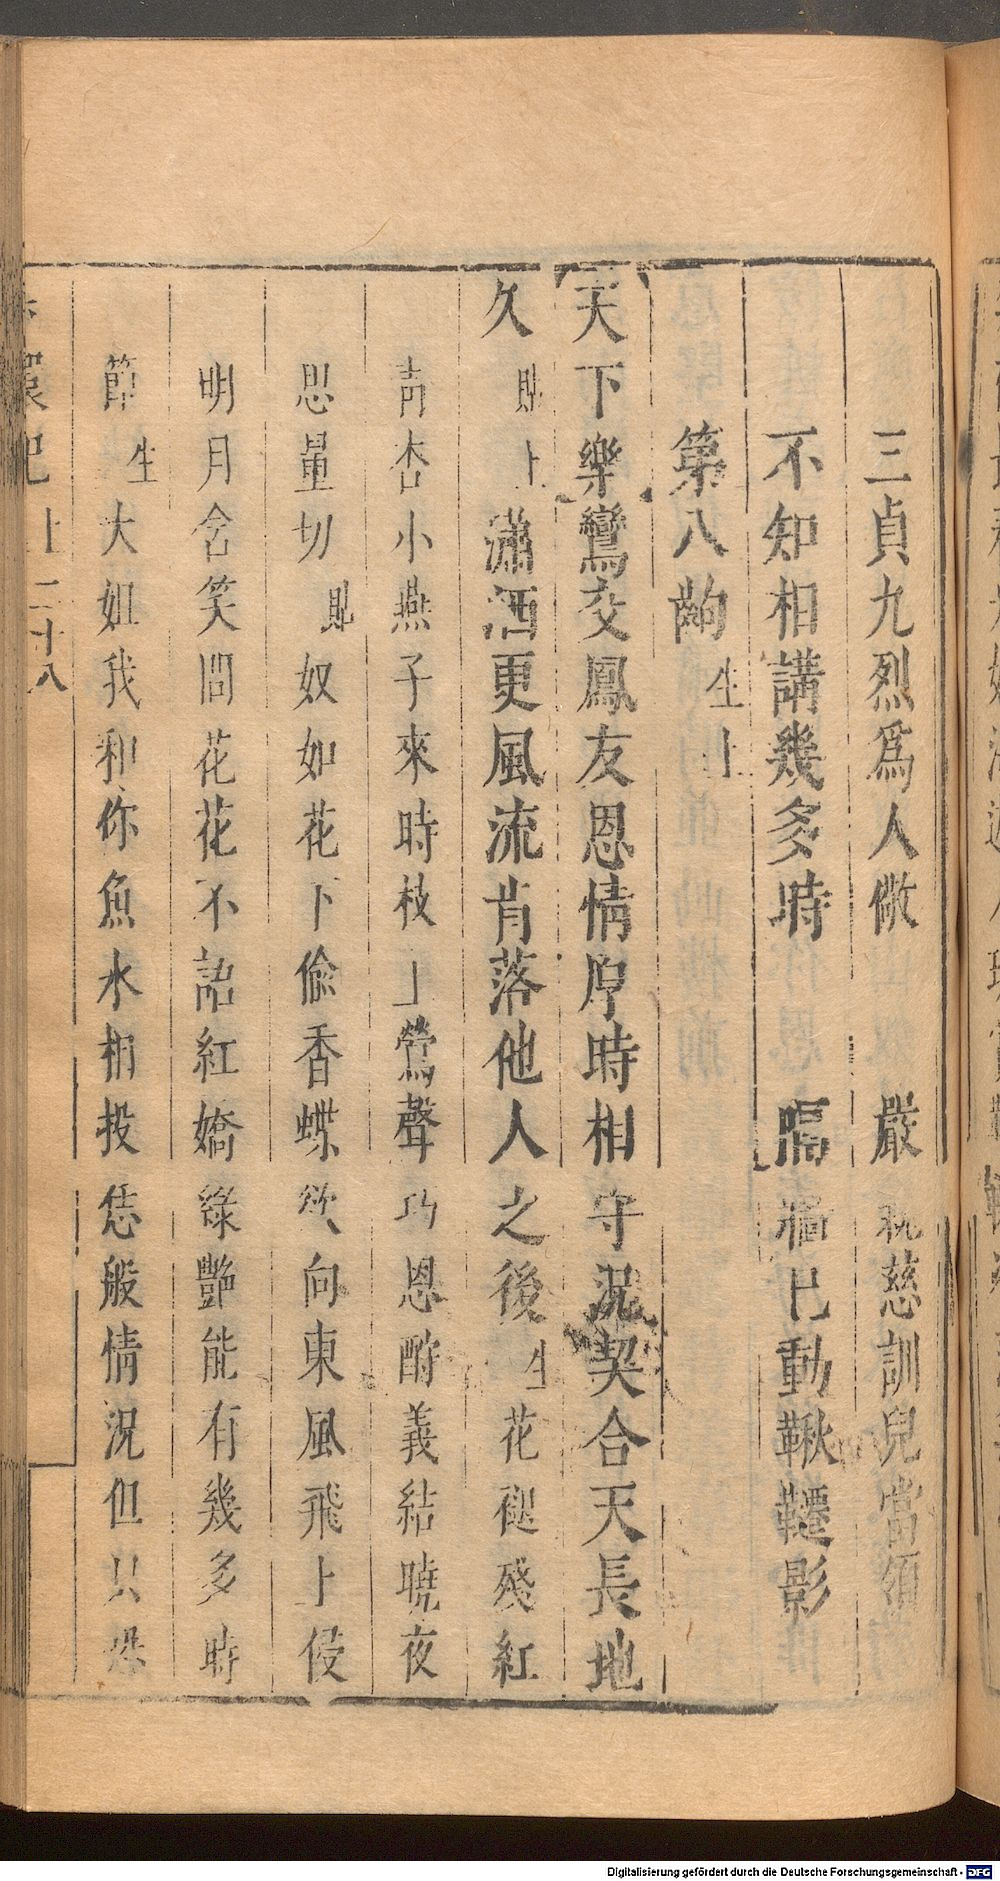 三貞九烈爲人儆　嚴親慈訓兒當領
不知相講幾多時　隔牆已動鞦韆影
第八齣生上
天下樂鸞交鳳友恩情厚時相守況契合天長地
久貼上瀟洒更風流肯落他人之後生花褪殘紅
青杏小燕子來時枝上鶯聲巧恩酧義結曉夜
思量切貼奴如花下偸香蝶欲向東風飛上侵
明月含笑問花花不語紅嬌綠艷能有幾多時
節生大姐我和你魚水相投恁般情況但只恐
環記上二十八
Digitalisierung gefördert durch die Deutsche Forschungsgemeinschaft - DFG